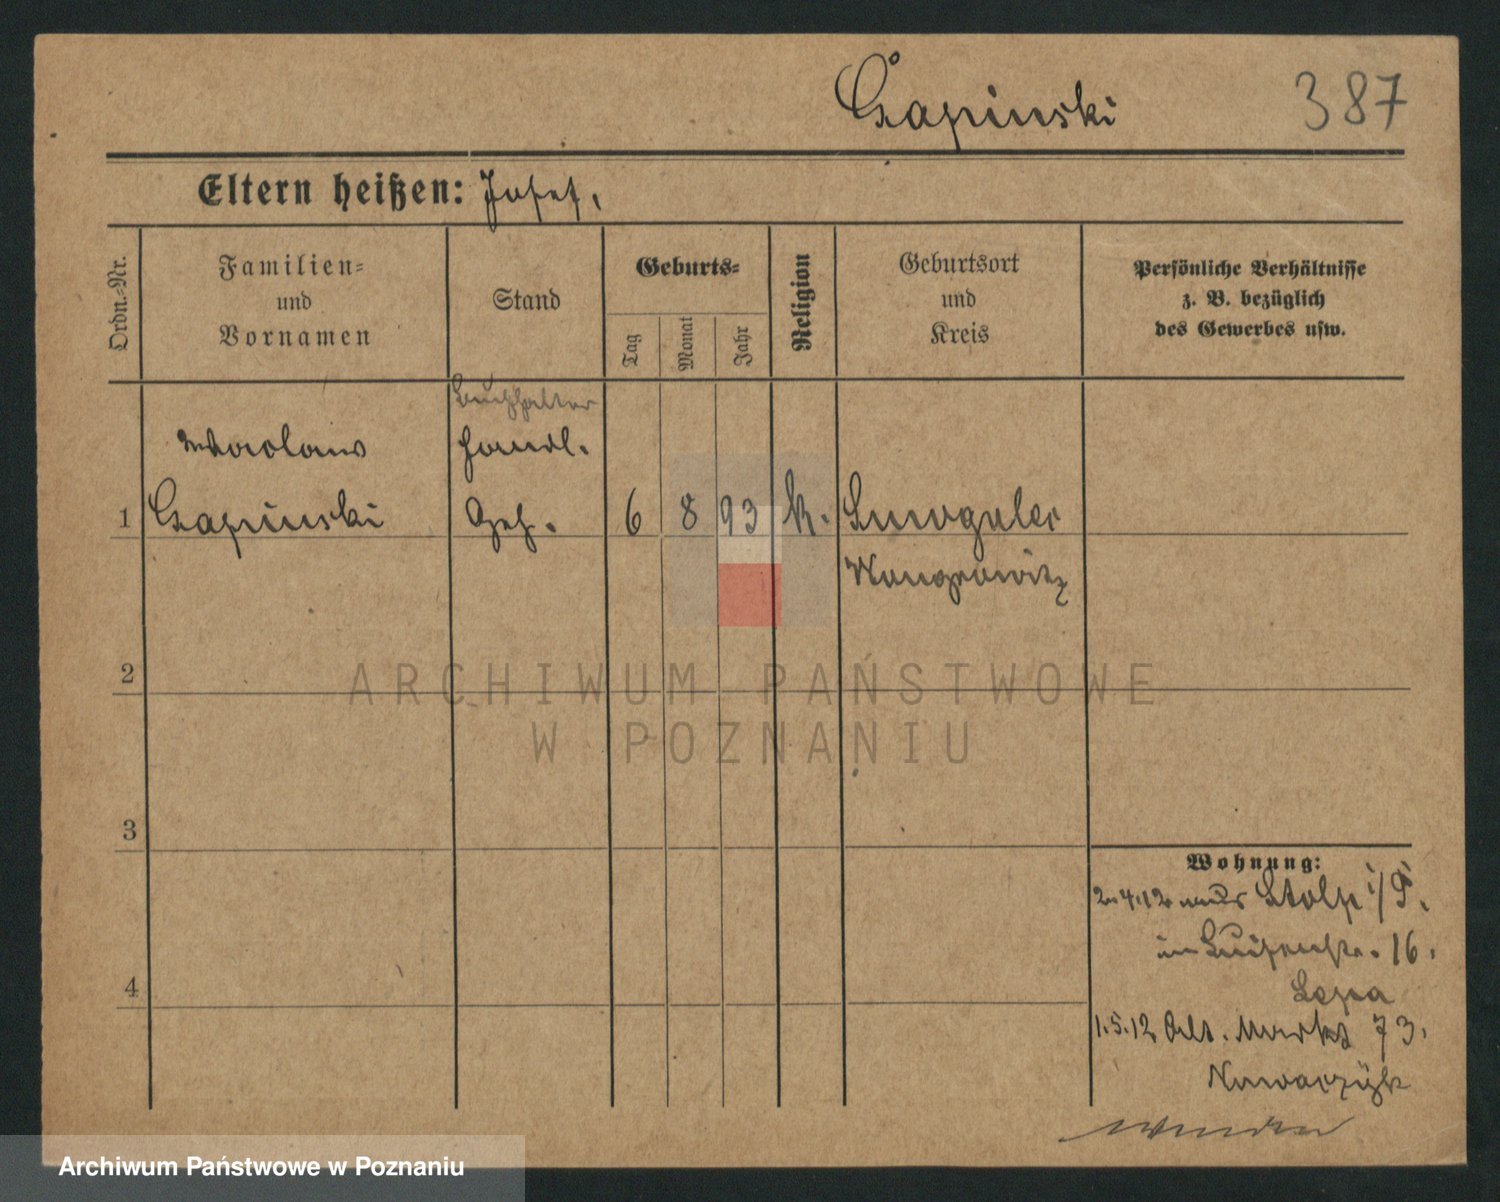 Czapinski 387
Eltern heißen: Josef.
Ordn.-Nr.
Familien-
und
Vornamen
Stand
Geburts-
Tag
Monat
Jahr
Religion
Geburtsort
und
Kreis
Persönliche Verhältnisse
z. B. bezüglich
des Gewerbes usw.
Buchhalter
Waclaw Handl.
1 Czapinski Geh. 6 8 93 k. Smogulec
Wongrowitz
2
ARCHIWUM PAŃSTWOWE
W POZNANIU
3
Wohnung:
2.4.12 aus Stolp i/P.
in Luisenstr. 16.
4
1.5.12 Alt. Markt 73.
Nowaczyk
wenden
Archiwum Państwowe w Poznaniu